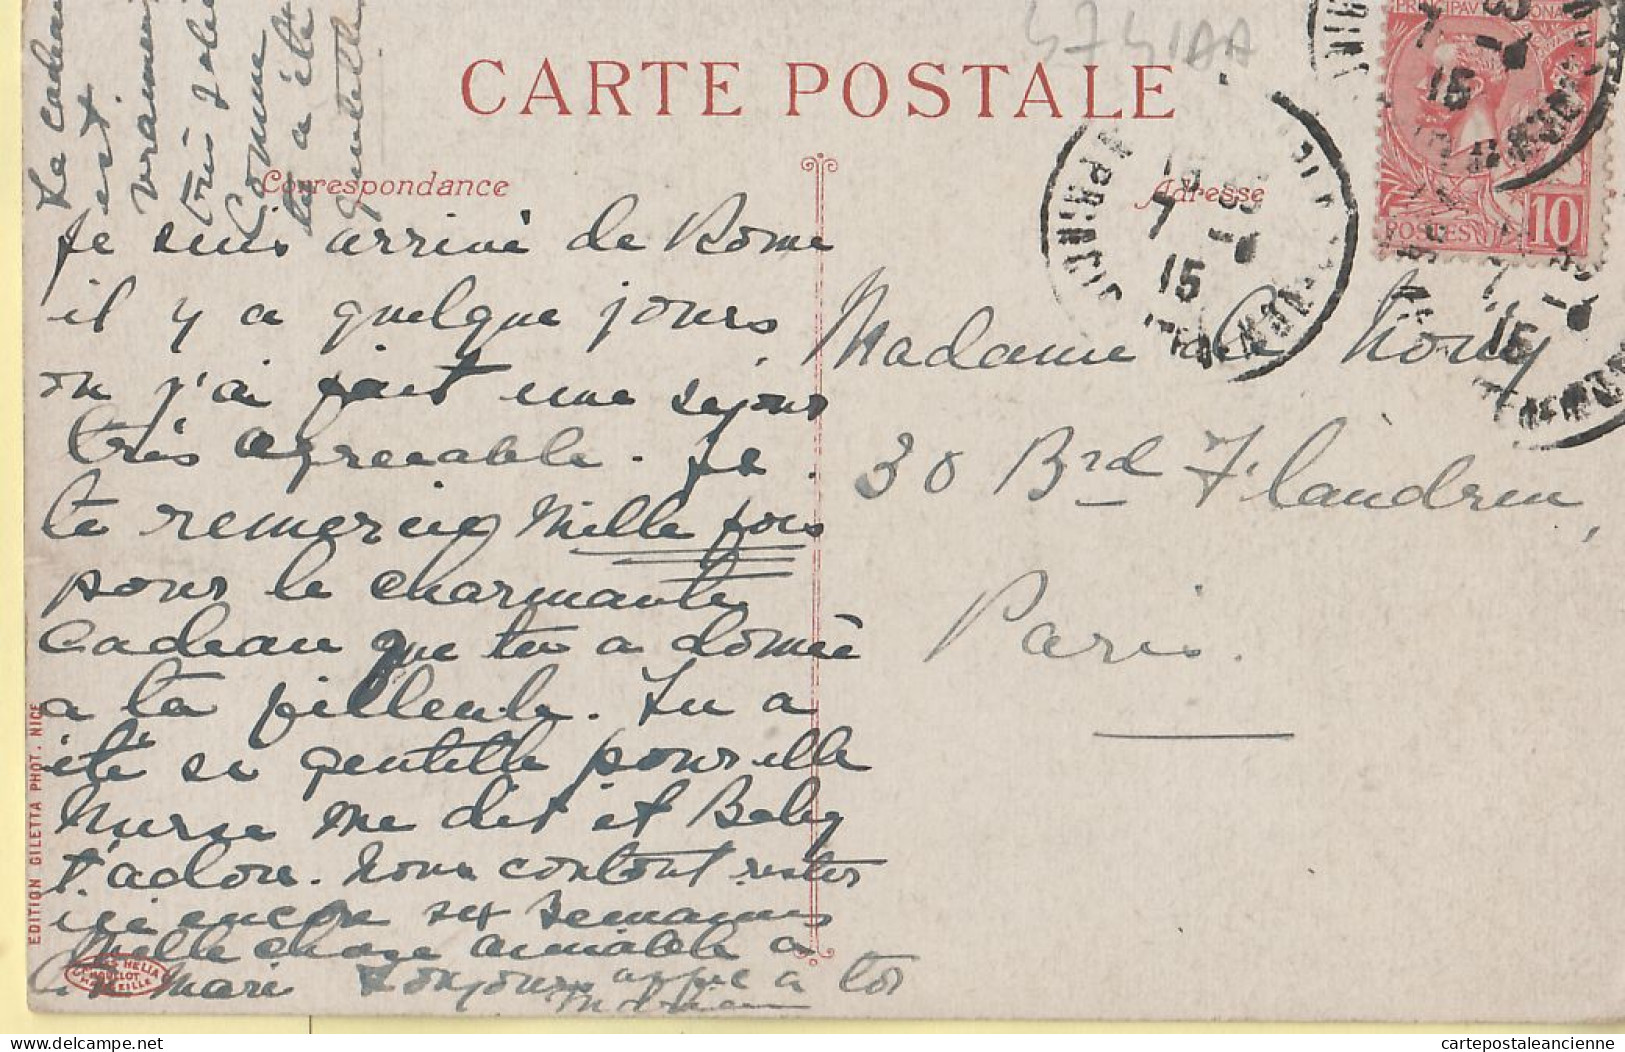 CARTE POSTALE
Correspondance
Adresse
Le cadeau
est
vraiment
très joli
Comme
tu a été
gentille
Je suis arrivé de Rome
il y a quelque jours
ou j'ai fait une sejour
très agreeable. Je
te remercie Mille fois
pour le charmante
cadeau que tu a donnée
a ta filleule. Tu a
été si gentille pour elle
Nurse me dit et Baby
t'adore. Nous contont rester
ici encore six Semaines
Mille chose aimable a
ton Mari Toujours affec a toi
Madame de
30 Brd Flandrin,
Paris.
PRINCIPAUTÉ
10
POSTES
7
15
15
7
15
15
EDITION GILETTA PHOT. NICE
HELIA
MARSEILLE
5751AA
cartepostaleancienne
delcampe.net